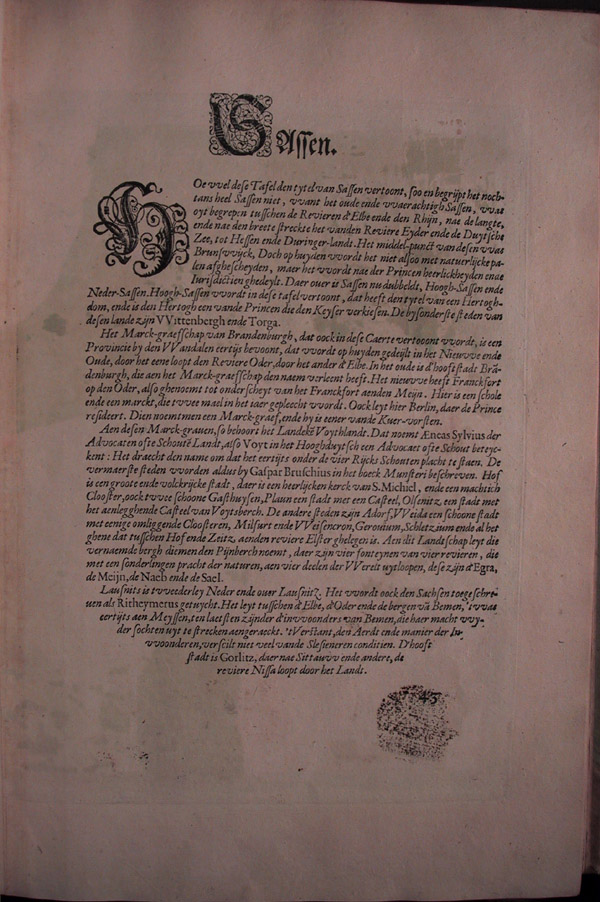 SAssen.
HOe wel dese Tafel den tytel van Sassen vertoont, soo en begrijpt het noch-
tans heel Sassen niet, want het oude ende waerachtigh Sassen, was
oyt begrepen tusschen de Revieren d'Elbe ende den Rhijn, nae de langte,
ende nae den breete streckte het vanden Reviere Eyder ende de Duytsche
Zee, tot Hessen ende Duringer-landt. Het middel-punct van desen was
Brunswijck, Doch op huyden wordt het niet alsoo met natuerlijcke pa-
len afghescheyden, maer het wordt nae der Princen heerlickheyden ende
Iurisdictien ghedeylt. Daer over is Sassen nu dubbeldt, Hoogh-Sassen ende
Neder-Sassen. Hoogh-Sassen wordt in dese tafel vertoont, dat heeft den tytel van een Hertogh-
dom, ende is den Hertogh een vande Princen die den Keyser verkiesen. De bysonderste steden van
desen lande zijn VVittenbergh ende Torga.
Het Marck-graefschap van Brandenburgh, dat oock in dese Caerte vertoont wordt, is een
Provincie by den VVandalen eertijs bewoont, dat wordt op huyden gedeijlt in het Nieuwe ende
Oude, door het eene loopt den Reviere Oder, door het ander d'Elbe. In het oude is d'hooft stadt Brā-
denburgh, die aen het Marck-graefschap den naem verleent heeft. Het nieuwe heeft Franckfort
op den Oder, also ghenoemt tot onderscheyt van het Franckfort aenden Meijn. Hier is een schole
ende een marckt, die twee mael in het iaer gepleecht wordt. Oock leyt hier Berlin, daer de Prince
resideert. Dien noemt men een Marck-graef, ende hy is eener vande Kuer-vorsten.
Aen desen Marck-grauen, so behoort het Landekē Voythlandt. Dat noemt Æneas Sylvius der
Advocaten ofte Schoutē Landt, also Voyt in het Hooghduytsch een Advocaet ofte Schout beteyc-
kent: Het draecht den name om dat het eertijts onder de vier Rijcks Schouten placht te staen. De
vermaerste steden worden aldus by Gaspar Bruschius in het boeck Munsteri beschreven. Hof
is een groote ende volckrijcke stadt, daer is een heerlijcken kerck van S. Michiel, ende een machtich
Clooster, oock twee schoone Gasthuysen, Plaun een stadt met een Casteel, Olsenitz, een stadt met
het aenlegghende Casteel van Voytsberch. De andere steden zijn Adorf, VVeida een schoone stadt
met eenige omliggende Cloosteren, Milfurt ende VVeisencron, Geronium, Schletzium ende al het
ghene dat tusschen Hof ende Zeitz, aenden reviere Elster ghelegen is. Aen dit Landtschap leyt die
vernaemde bergh diemen den Pijnberch noemt, daer zijn vier fonteynen van vier revieren, die
met een sonderlingen pracht der naturen, aen vier deelen der VVerelt uytloopen, dese zijn d'Egra,
de Meijn, de Naeb ende de Sael.
Lausnits is tweederley Neder ende over Lausnitz. Het wordt oock den Sachsen toegeschre-
ven als Ritheymerus getuycht. Het leyt tusschen d'Elbe, d'Oder ende de bergen vā Bemen, 't was
eertijts aen Meyssen, ten laetsten zijnder d'inwoonders van Bemen, die haer macht wy-
der sochten uyt te strecken aengeraeckt. 't Verstant, den Aerdt ende manier der In-
woonderen, verscilt niet veel vande Slesieneren conditien. D'hooft
stadt is Gorlitz, daer nae Sittauw ende andere, de
reviere Nissa loopt door het Landt.
45